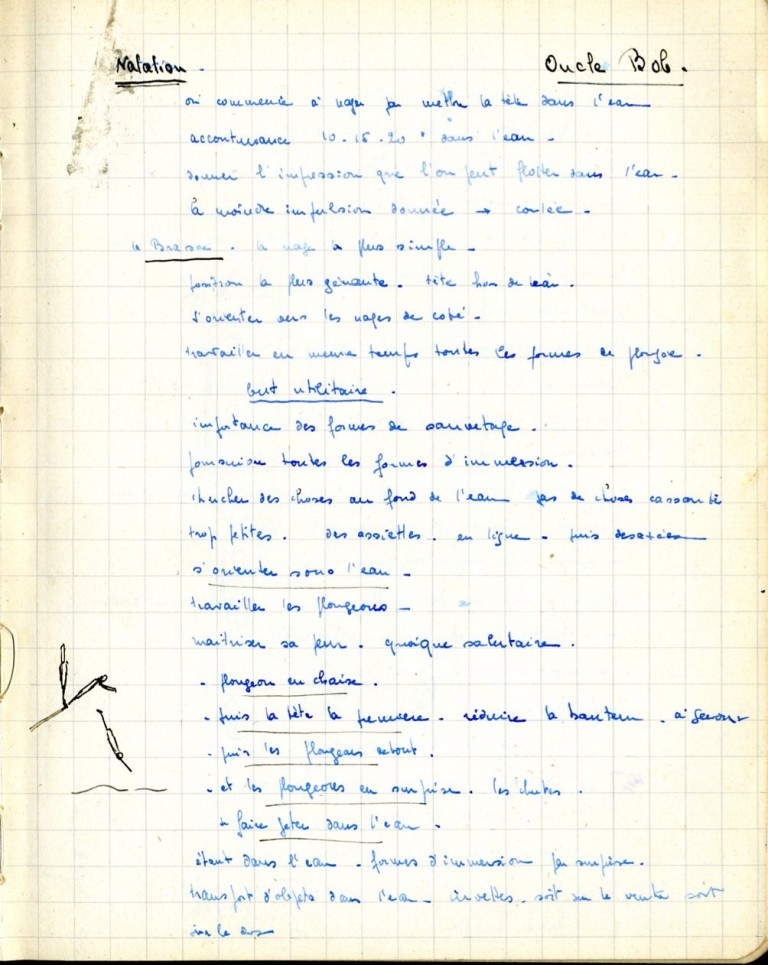 Natation - Oncle Bob.
on commence à nager par mettre la tête dans l'eau
accoutumance 10. 15. 20 " dans l'eau -
donner l'impression que l'on peut flotter dans l'eau -
la moindre impulsion donnée → coulée -
la Brasse. la nage la plus simple -
position la plus gênante. tête hors de l'eau.
s'orienter vers les nages de coté -
travailler en meme temps toutes les formes de plongée.
but utilitaire.
importance des formes de sauvetage.
poursuivre toutes les formes d'immersion.
chercher des choses au fond de l'eau pas de choses
trop petites. des assiettes. en ligne - puis
s'orienter sous l'eau -
travailler les plongeons -
maitriser sa peur. quoique salutaire.
- plongeon en chaise.
- puis la tête la premiere. réduire la hauteur. à genoux
- puis les plongeons debout.
- et les plongeons en surprise. les chutes.
se faire jeter dans l'eau -
étant dans l'eau - formes d'immersion par surprise.
transport d'objets dans l'eau - soit sur le ventre soit
sur le dos